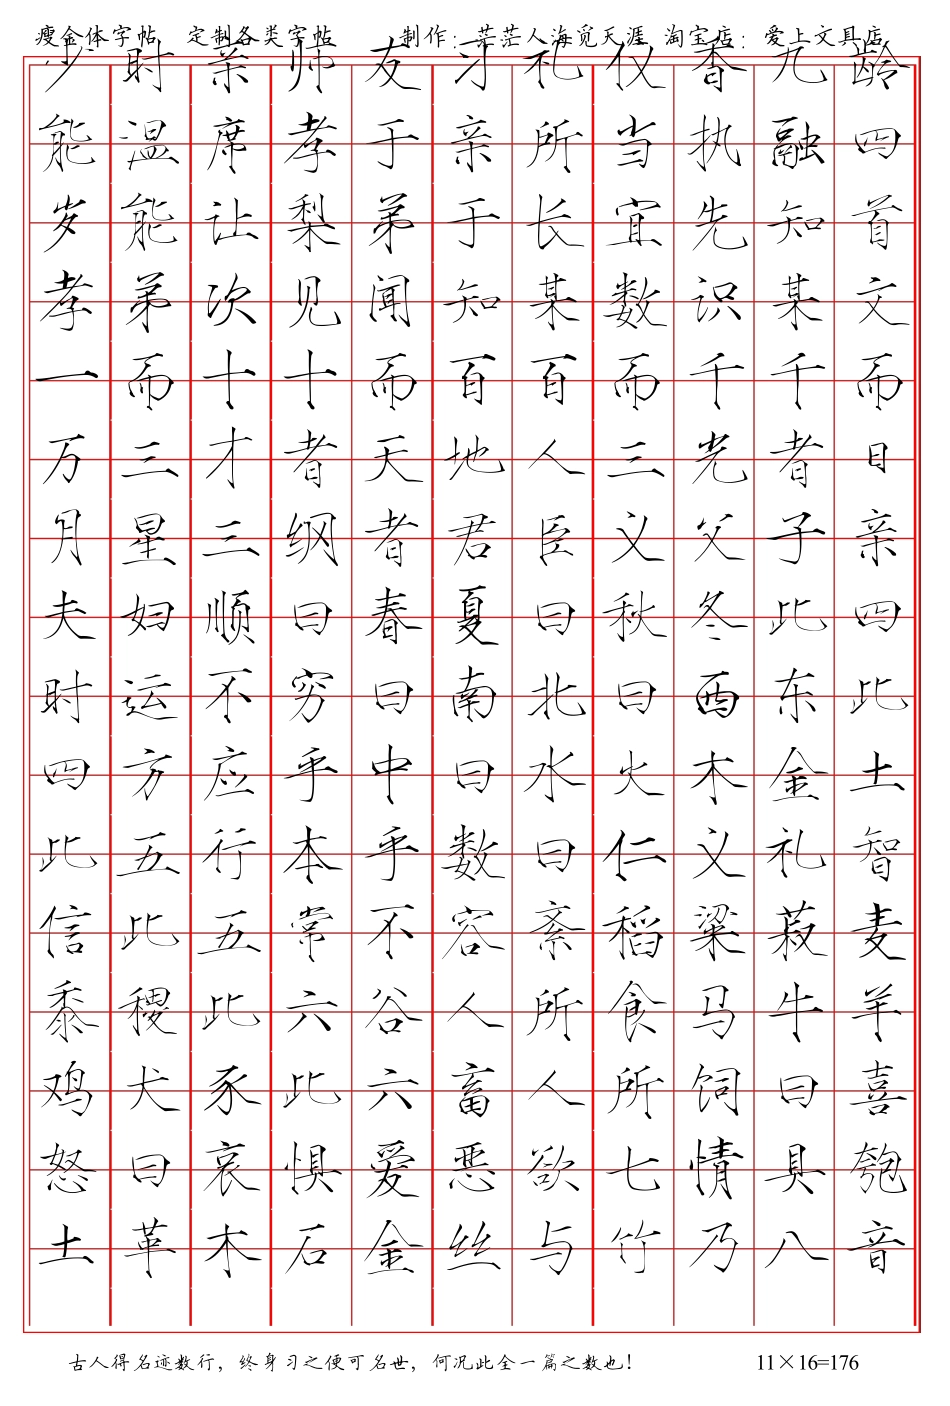 瘦金体字帖 定制各类字帖 制作：茫茫人海觅天涯 淘宝店：爱上文具店
少时亲师友习礼仪香九龄
能温席孝于亲所当执融四
岁能让梨弟于长宜先知首
孝弟次见闻知某数识某文
一而十十而百百而千千而
万三才者天地人三光者日
月星三纲者君臣义父子亲
夫妇顺曰春夏曰秋冬此四
时运不穷曰南北曰西东此
四方应乎中曰水火木金土
此五行本乎数曰仁义礼智
信此五常不容紊稻粱菽麦
黍稷此六谷人所食马牛羊
鸡犬豕此六畜人所饲曰喜
怒曰哀惧爱恶欲七情具匏
土革木石金丝与竹乃八音
古人得名迹数行，终身习之便可名世，何况此全一篇之数也！ 11×16=176